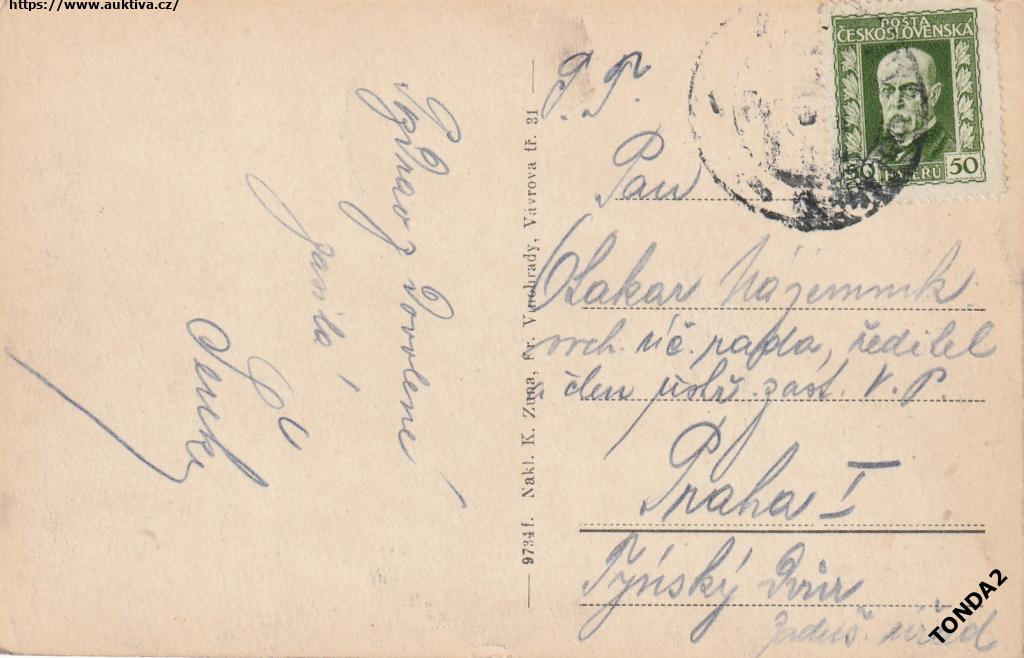 https://www.auktiva.cz/
Pozdrav z dovolené
zasílá
9734f. Nakl. K. Zuna, Kr. Vinohrady, Vávrova tř. 31
POŠTA
ČESKOSLOVENSKÁ
50 HALÉŘŮ 50
P. T.
Pan
Otakar Nájemník
vrch. úč. rada, ředitel
a člen ústř. zást. N. P.
Praha I
Týnský Dvůr
úřad
TONDA2